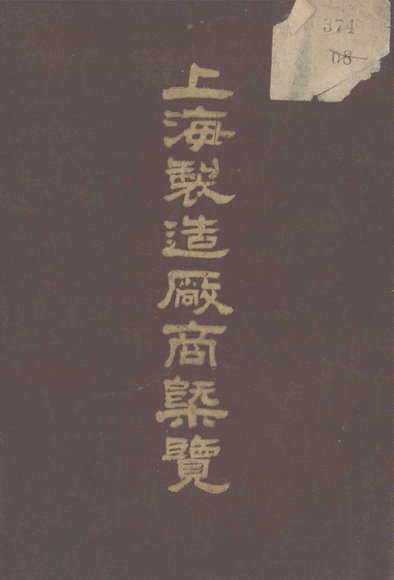 上海製造廠商槩覽
374
08